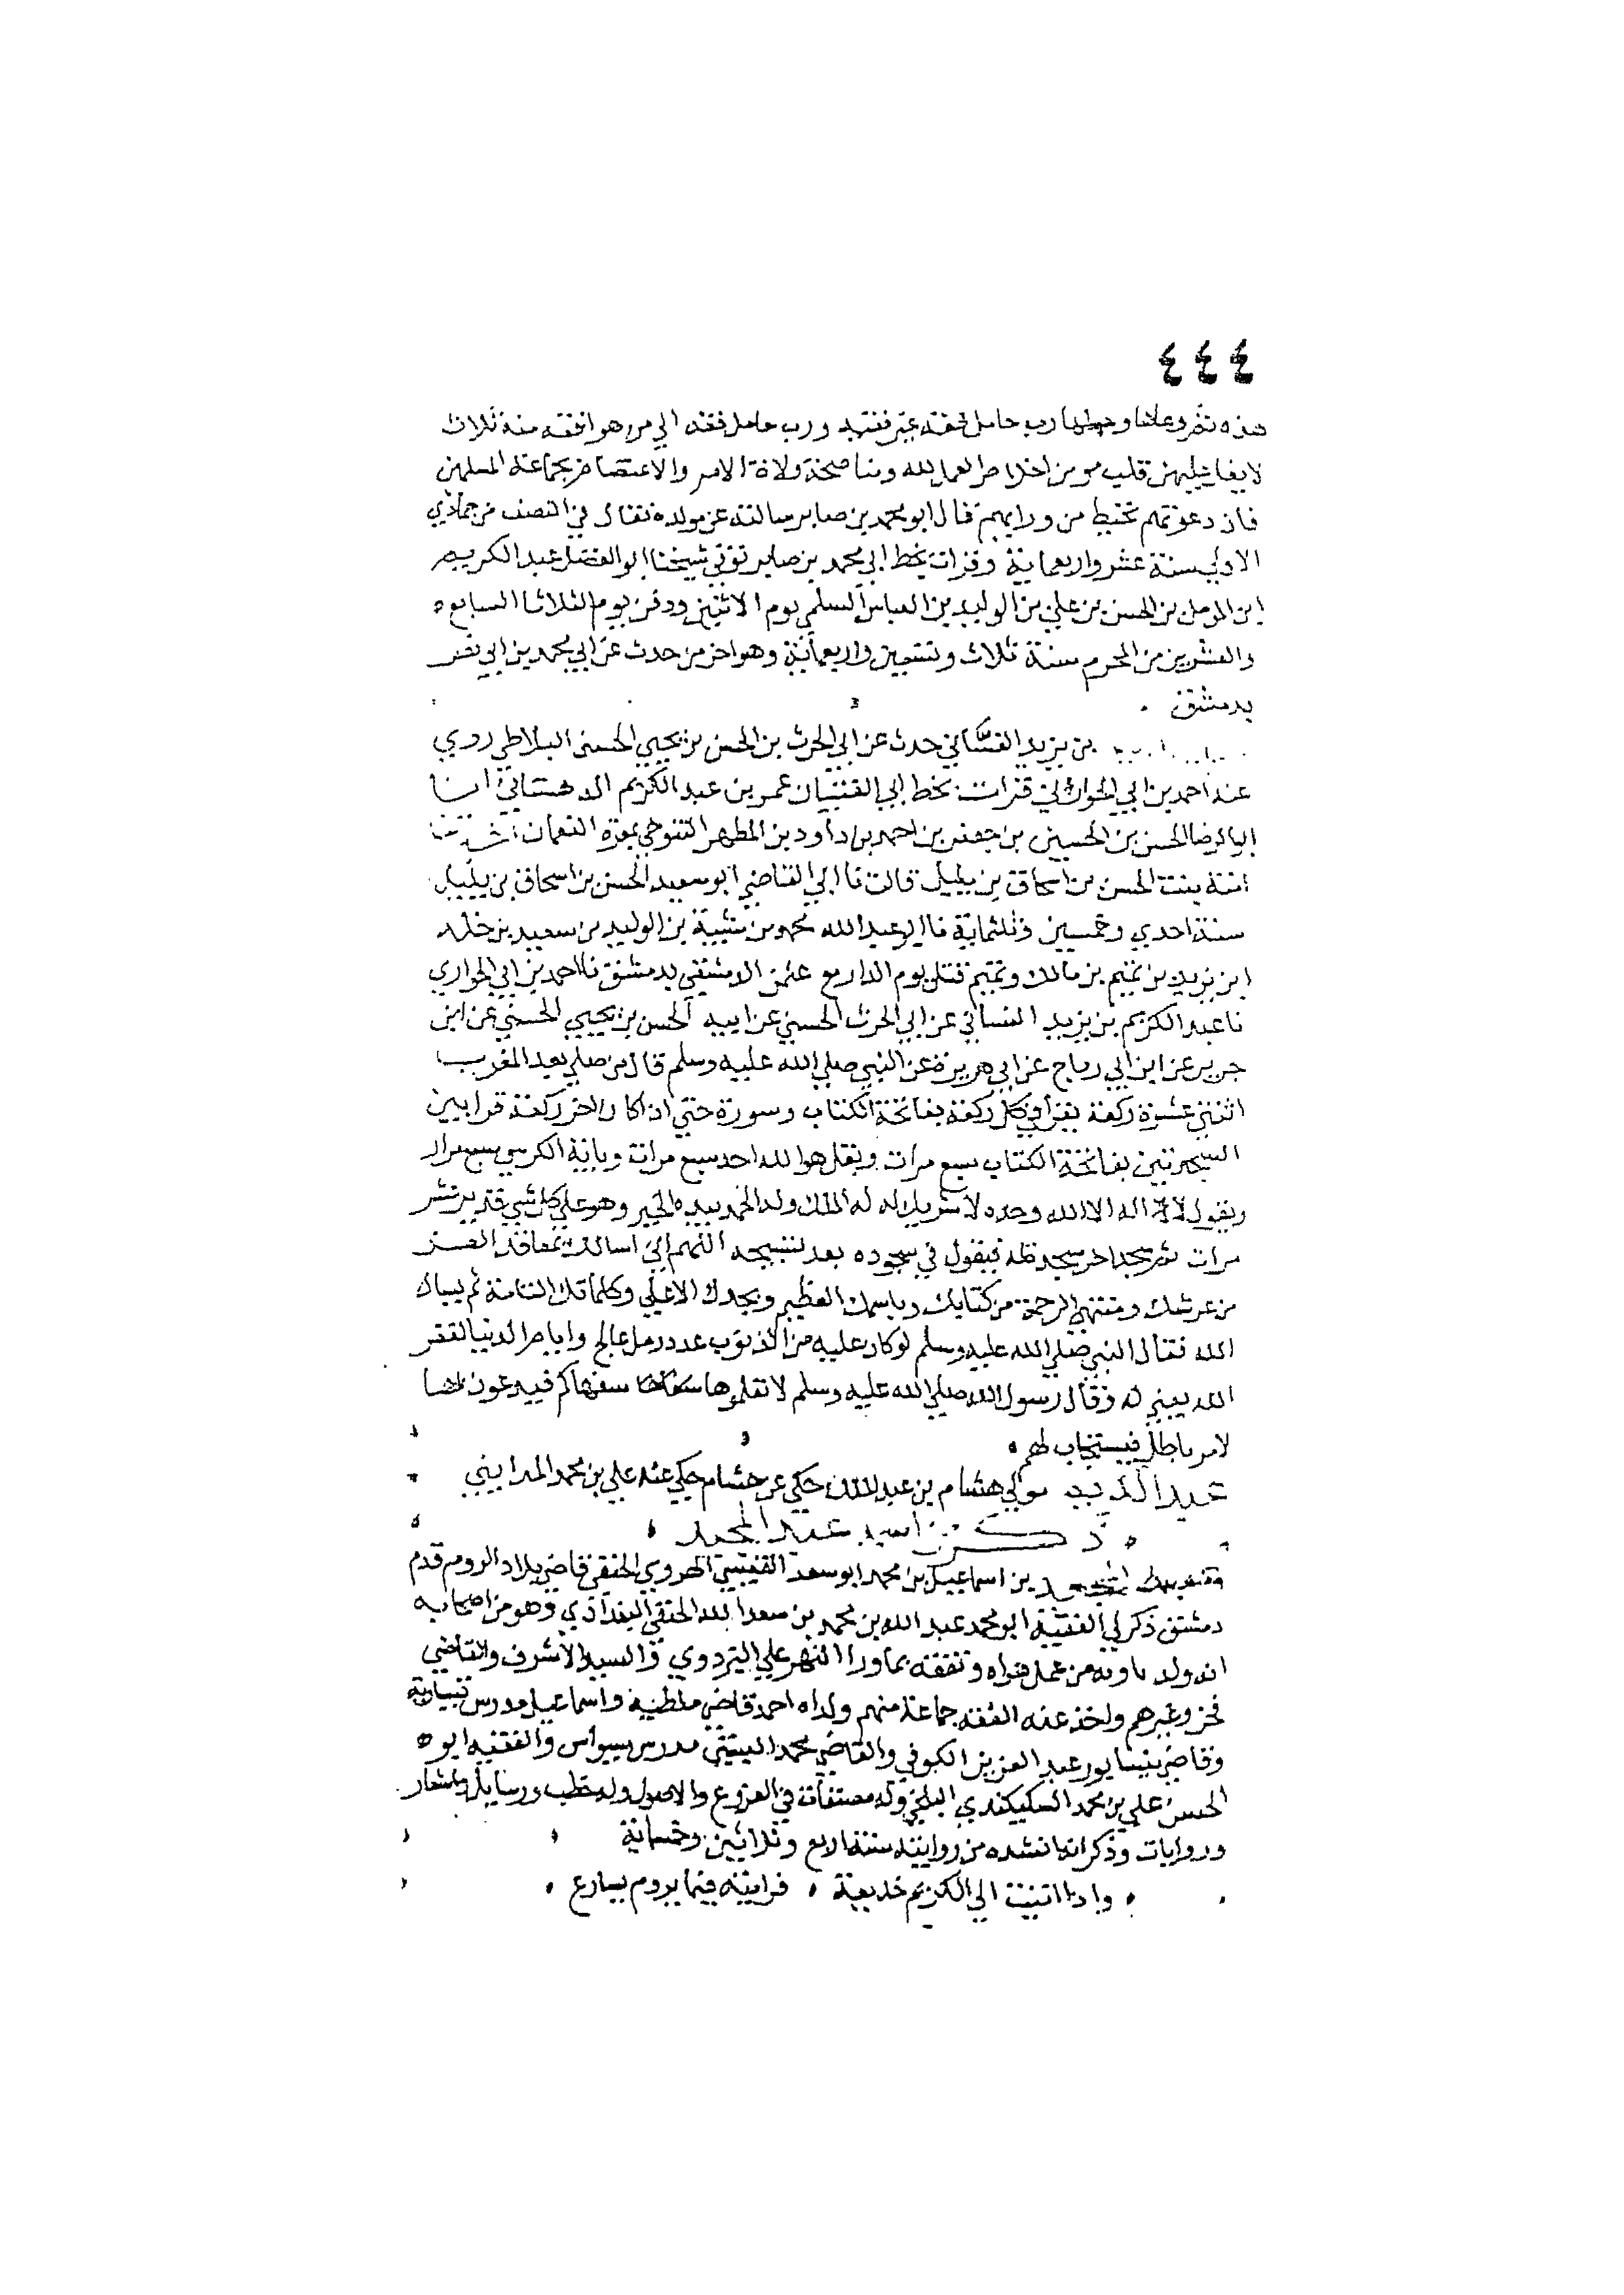 ٤٤٤
هذه ثم وعاها وحملها رب حامل فقه غير فقيه ورب حامل فقه الي من هو افقه منه ثلاث
لا يغل عليهن قلب مومن اخلاص العمل لله ومناصحة ولاة الامر والاعتصام بجماعة المسلمين
فان دعوتهم تحيط من ورايهم قال ابو محمد بن صابر سالته عن مولده فقال في النصف من جمادي
الاولي سنة عشر واربعماية وقرات بخط ابي محمد بن صابر توفي شيخنا ابو الفضل عبد الكريم
ابن المومل بن الحسن بن علي بن الوليد بن العباس السلمي يوم الاثنين ودفن يوم الثلاثا السابع
والعشرين من المحرم سنة ثلاث وتسعين واربعماية وهو اخر من حدث عن ابي محمد بن ابي نصر
بدمشق
بن يزيد الغساني حدث عن ابي الحرث بن الحسن بن يحيي الحسني البلاطي روي
عنه احمد بن ابي الحواري قرات بخط ابي الفتيان عمر بن عبد الكريم الدهستاني انا
ابو الرضا الحسن بن الحسين بن جعفر بن احمد بن داود بن المطهر التنوخي بمعرة النعمان
امنة بنت الحسن بن اسحاق بن بلبل قالت نا ابي القاضي ابو سعيد الحسن بن اسحاق بن بلبل
سنة احدي وخمسين وثلثماية نا ابو عبد الله محمد بن شيبة بن الوليد بن سعيد بن خالد
ابن يزيد بن تميم بن مالك وتميم قتل يوم الدار مع عثمن الدمشقي بدمشق نا احمد بن ابي الحواري
نا عبد الكريم بن يزيد الغساني عن ابي الحرث الحسني عن ابيه الحسن بن يحيي الحسني عن ابن
جرير عن ابن ابي رباح عن ابي هريرة عن النبي صلي الله عليه وسلم قال من صلي بعد المغرب
اثنتي عشرة ركعة يقرا في كل ركعة بفاتحة الكتاب وسورة حتي اذا كان اخر ركعة قرا بين
السجدتين بفاتحة الكتاب سبع مرات وبقل هو الله احد سبع مرات وباية الكرسي سبع مرار
ويقول لا اله الا الله وحده لا شريك له له الملك وله الحمد بيده الخير وهو علي كل شي قدير عشر
مرات ثم سجد اخر سجدة له فيقول في سجوده بعد تسبيحه اللهم اني اسالك بمعاقد العز
من عرشك ومنتهي الرحمة من كتابك وباسمك العظيم وبجدك الاعلي وكلماتك التامة ثم يسال
الله فقال النبي صلي الله عليه وسلم لو كان عليه من الذنوب عدد رمل عالج وايام الدنيا لغفر
الله يعني له وقال رسول الله صلي الله عليه وسلم لا تعلموها سفهاكم فيدعون بها
لامر باطل فيستجاب لهم
مولي هشام بن عبد الملك حكي عن هشام حكي عنه علي بن محمد المدايني
ذكر من اسمه عبد المجيد
بن اسماعيل بن محمد ابو سعد القيسي الهروي الحنفي قاضي بلاد الروم قدم
دمشق ذكر لي الفقيه ابو محمد عبد الله بن محمد بن سعد الله الحنفي البغدادي وهو من اصحابه
انه ولد باوبه من عمل هراه وتفقه بماورا النهر علي البزدوي والسيد الاشرف والقاضي
فخر وغيرهم واخذ عنه الفقه جماعة منهم ولداه احمد قاضي ملطية واسماعيل مدرس قيسارية
وقاضي نيسابور عبد العزيز الكوفي والقاضي محمد مدرس سيواس والفقيه ابو
الحسن علي بن محمد السكيكندي البلخي وله مصنفات في الفروع والاصول وله خطب ورسايل واشعار
وروايات وذكر انه انشده من روايته سنة اربع وثلاثين وخمسماية
واذا اتيت الي الكريم خديعة فرايته فيما يروم يسارع